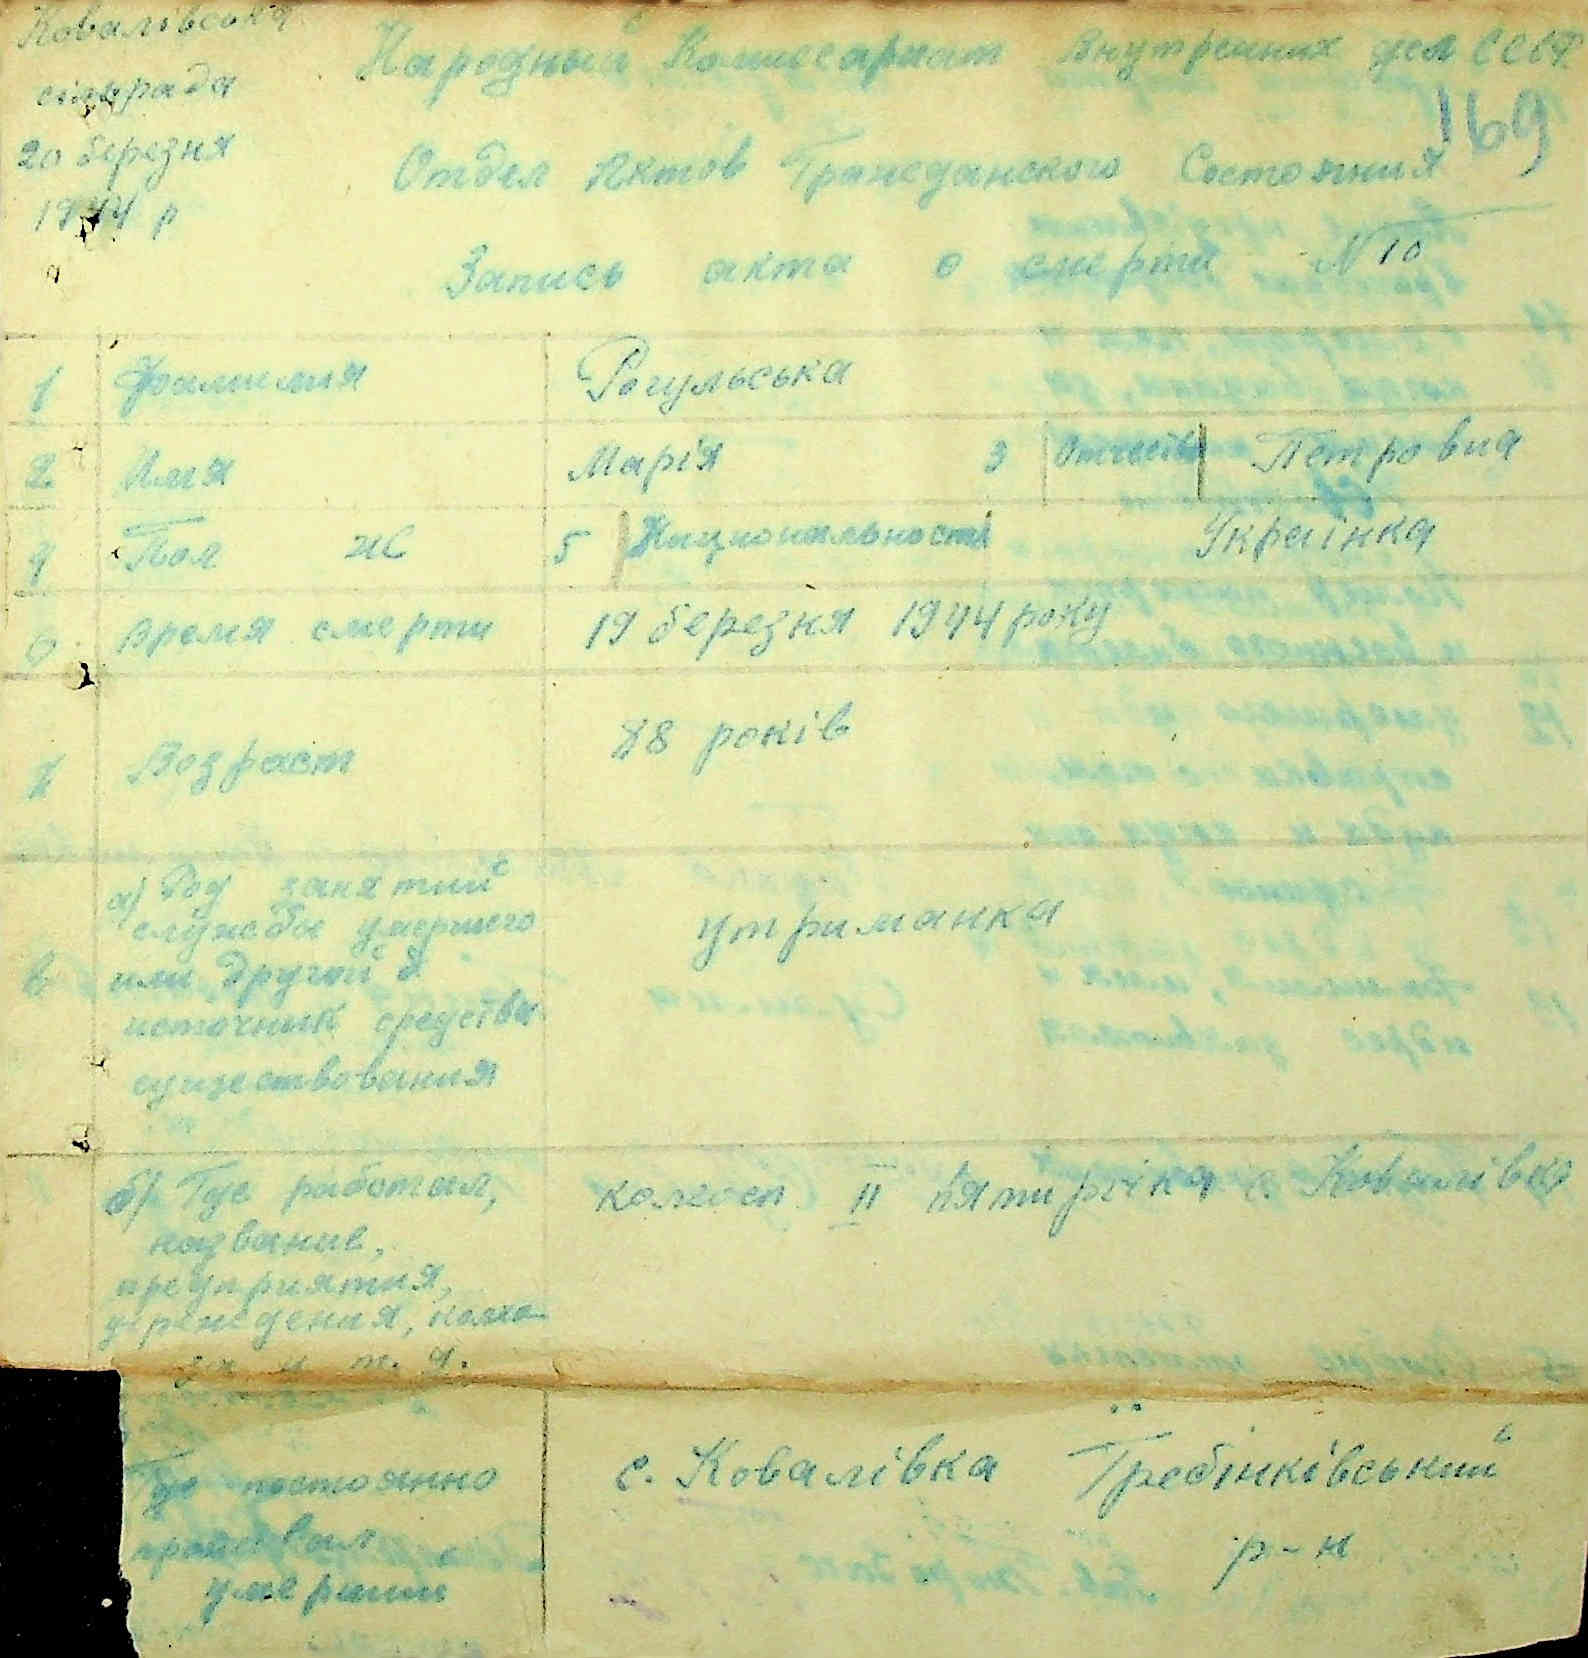 Ковалівська
сільрада
20 березня
1944 р
Народный Комиссариат Внутренних дел СССР
169
Отдел Актов Гражданского Состояния
Запись акта о смерти N 10
1 Фамилия Рогульська
2 Имя Марія 3 Отчество Петровна
4 Пол ж 5 Национальность Українка
6 Время смерти 19 березня 1944 року
7 Возраст 88 років
а) Род занятий
службы умершего
или другой
источник средства
существования
утриманка
б) Где работал,
название,
предприятия,
учреждения, колхо-
за и т. д.
колгосп II пятирічка с. Ковалівка
Где постоянно
проживал
умерший
с. Ковалівка Гребінківський
р-н